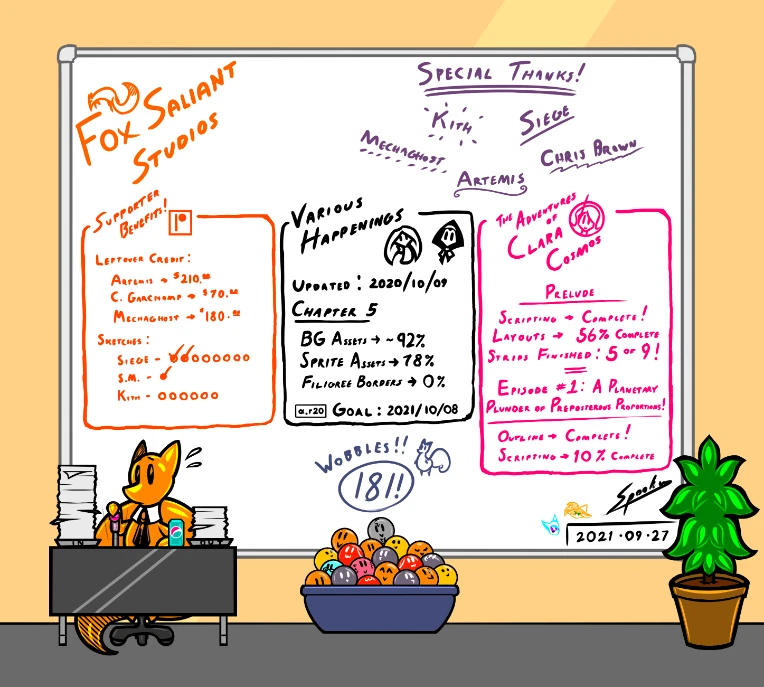 Fox Saliant
Studios
Special Thanks!
Kith
Siege
Mechaghost
Chris Brown
Artemis
Supporter
Benefits!
Leftover Credit:
Artemis → $210.00
C. Garchomp → $70.00
Mechaghost → $180.00
Sketches:
Siege -
S.M. -
Kith -
Various
Happenings
Updated: 2020/10/09
Chapter 5
BG Assets → ~92%
Sprite Assets → 78%
Filigree Borders → 0%
a.r20 Goal: 2021/10/08
The Adventures
of
Clara
Cosmos
Prelude
Scripting → Complete!
Layouts → 56% Complete
Strips Finished: 5 of 9!
Episode #1: A Planetary
Plunder of Preposterous Proportions!
Outline → Complete!
Scripting → 10% Complete
Wobbles!!
181!
Spooky
2021.09.27